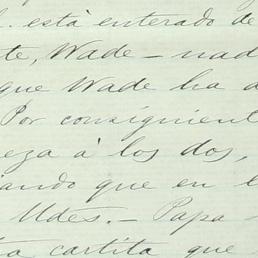 está enterado de
te, Wade — nad
que Wade ha d
Por consiguient
eza à los dos,
ando que en l
Udés. — Papa
ta cartita que